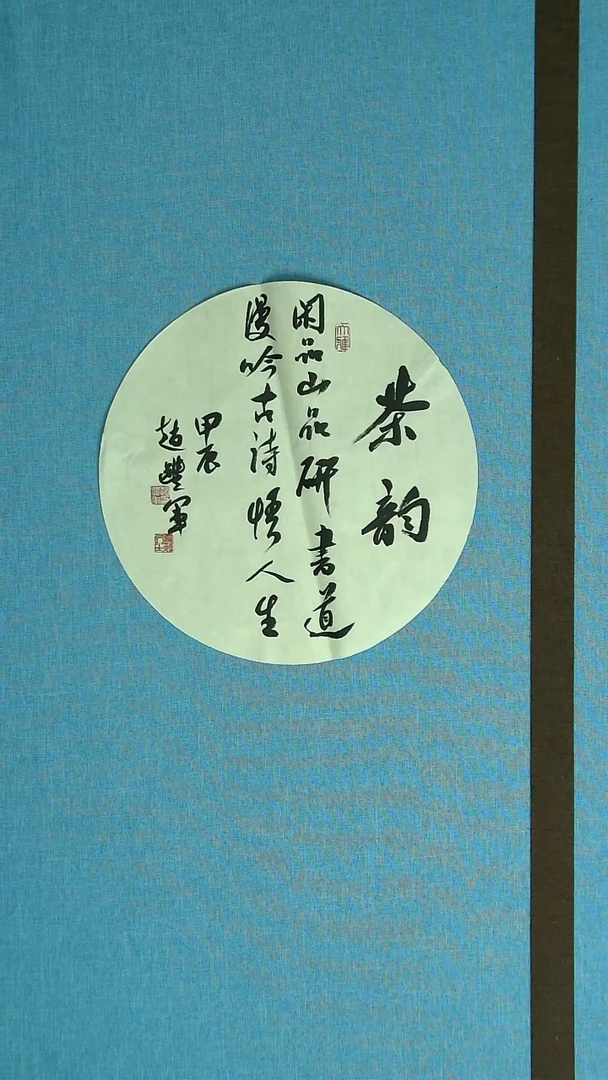 茶韵
闲品山品研书道
漫吟古诗悟人生
甲辰
赵丰军